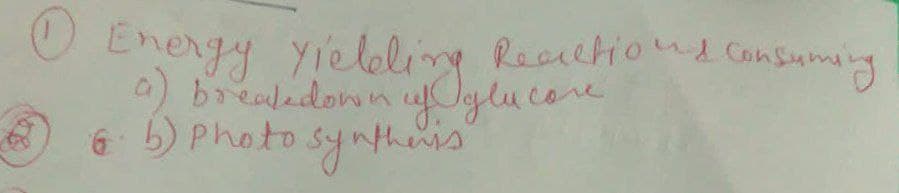 ① Energy Yielding Reaction & Consuming
a) breakdown of glucose
b) Photosynthesis